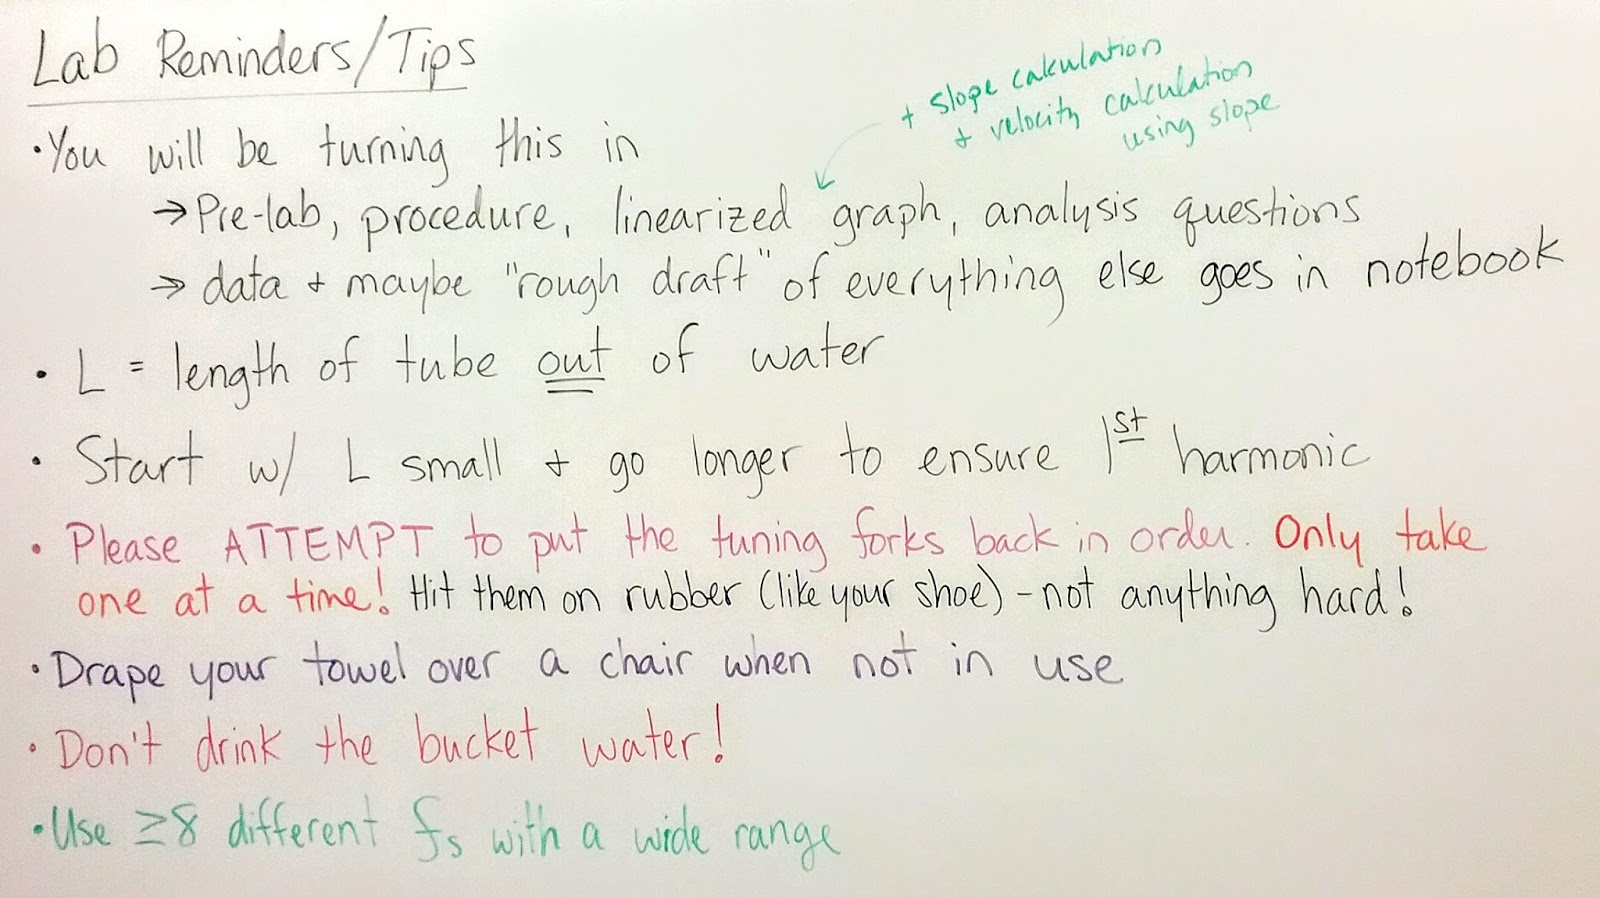 Lab Reminders/Tips
+ slope calculation
+ velocity calculation
using slope
•You will be turning this in
→Pre-lab, procedure, linearized graph, analysis questions
→ data + maybe "rough draft" of everything else goes in notebook
• L = length of tube out of water
• Start w/ L small + go longer to ensure 1st harmonic
• Please ATTEMPT to put the tuning forks back in order. Only take
one at a time! Hit them on rubber (like your shoe) - not anything hard!
•Drape your towel over a chair when not in use
• Don't drink the bucket water!
•Use ≥8 different fs with a wide range